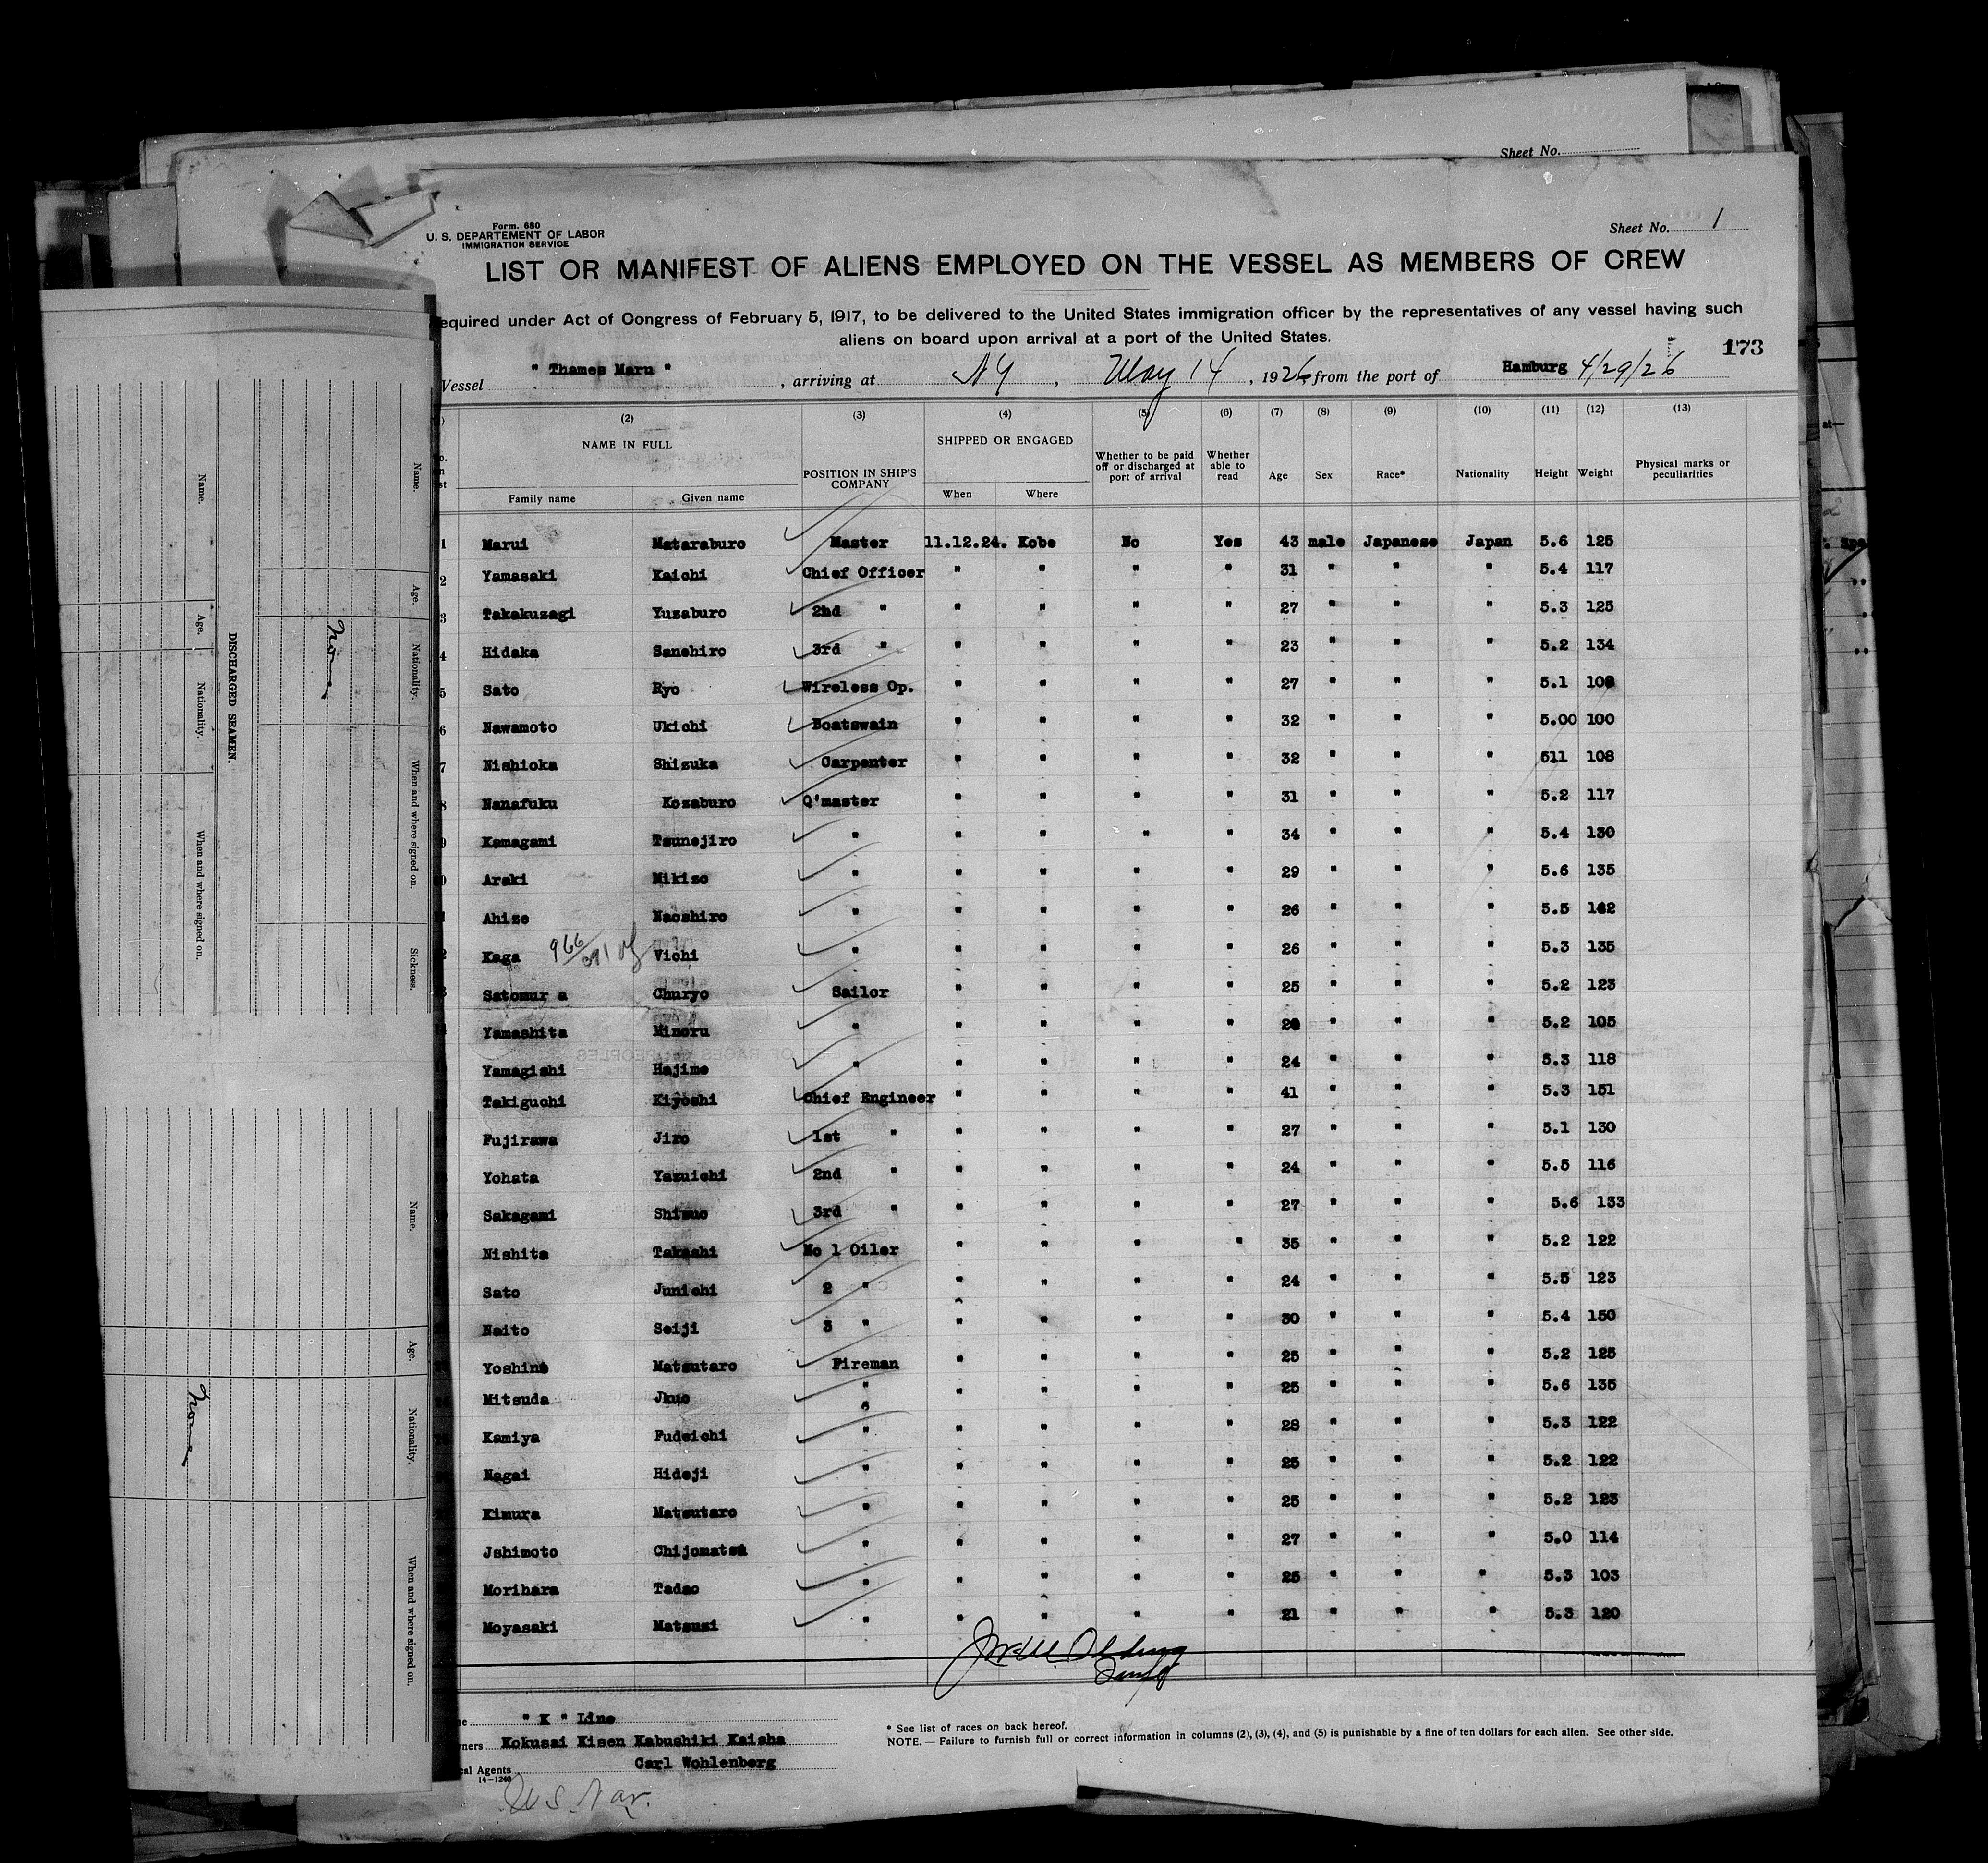 Sheet No.
Form. 680
U. S. DEPARTEMENT OF LABOR
IMMIGRATION SERVICE
Sheet No. 1
LIST OR MANIFEST OF ALIENS EMPLOYED ON THE VESSEL AS MEMBERS OF CREW
equired under Act of Congress of February 5, 1917, to be delivered to the United States immigration officer by the representatives of any vessel having such
aliens on board upon arrival at a port of the United States.
173
Vessel " Thames Maru " , arriving at NY , May 14 , 1926, from the port of Hamburg 4/29/26
(2) (3) (4) (5) (6) (7) (8) (9) (10) (11) (12) (13)
NAME IN FULL
Family name Given name
POSITION IN SHIP'S COMPANY
SHIPPED OR ENGAGED
When Where
Whether to be paid off or discharged at port of arrival
Whether able to read
Age Sex Race* Nationality Height Weight
Physical marks or peculiarities
1 Marui Mataraburo Master 11.12.24. Kobe No Yes 43 male Japanese Japan 5.6 125
2 Yamasaki Kaichi Chief Officer " " " " 31 " " " 5.4 117
3 Takakuzagi Yuzaburo 2nd " " " " " 27 " " " 5.3 125
4 Hidaka Sanehiro 3rd " " " " " 23 " " " 5.2 134
5 Sato Ryo Wireless Op. " " " " 27 " " " 5.1
6 Nawamoto Ukichi Boatswain " " " " 32 " " " 5.00 100
7 Nishioka Shizuka Carpenter " " " " 32 " " " 511 108
8 Nanafuku Kozaburo Q'master " " " " 31 " " " 5.2 117
9 Kamagami Tsunejiro " " " " " 34 " " " 5.4 130
0 Araki Mikizo " " " " " 29 " " " 5.6 135
1 Ahize Naoshiro " " " " " 26 " " " 5.5 142
2 Kaga 966/391 Vichi " " " " " 26 " " " 5.3 135
3 Satomur a Churyo Sailor " " " " 25 " " " 5.2 123
Yamashita Minoru " " " " " " " " 5.2 105
Yamagishi Hajime " " " " " 24 " " " 5.3 118
Takiguchi Kiyoshi Chief Engineer " " " " 41 " " " 5.3 151
Fujirawa Jiro 1st " " " " " 27 " " " 5.1 130
Yohata Yazuichi 2nd " " " " " 24 " " " 5.5 116
Sakagami Shizuo 3rd " " " " " 27 " " " 5.6 133
Nishita Takashi No 1 Oiler " " " " 35 " " " 5.2 122
Sato Junichi 2 " " " " " 24 " " " 5.5 123
Naito Seiji 3 " " " " " 30 " " " 5.4 150
Yoshino Matsutaro Fireman " " " " 25 " " " 5.2 125
Mitsuda Jkuo " " " " " 25 " " " 5.6 135
Kamiya Fudeichi " " " " " 28 " " " 5.3 122
Nagai Hideji " " " " " 25 " " " 5.2 122
Kimura Matsutaro " " " " " 25 " " " 5.2 123
Jshimoto Chijomatsu " " " " " 27 " " " 5.0 114
Morihara Tadao " " " " " 25 " " " 5.3 103
Moyasaki Matsuzi " " " " " 21 " " " 5.3 120
" K " Line
wners Kokusai Kisen Kabushiki Kaisha
cal Agents Carl Wohlenberg
14—1240
* See list of races on back hereof.
NOTE. — Failure to furnish full or correct information in columns (2), (3), (4), and (5) is punishable by a fine of ten dollars for each alien. See other side.
Name. Age. Nationality. When and where signed on. Sickness.
None
DISCHARGED SEAMEN.
Name. Age. Nationality. When and where signed on.
Name. Age. Nationality. When and where signed on.
None